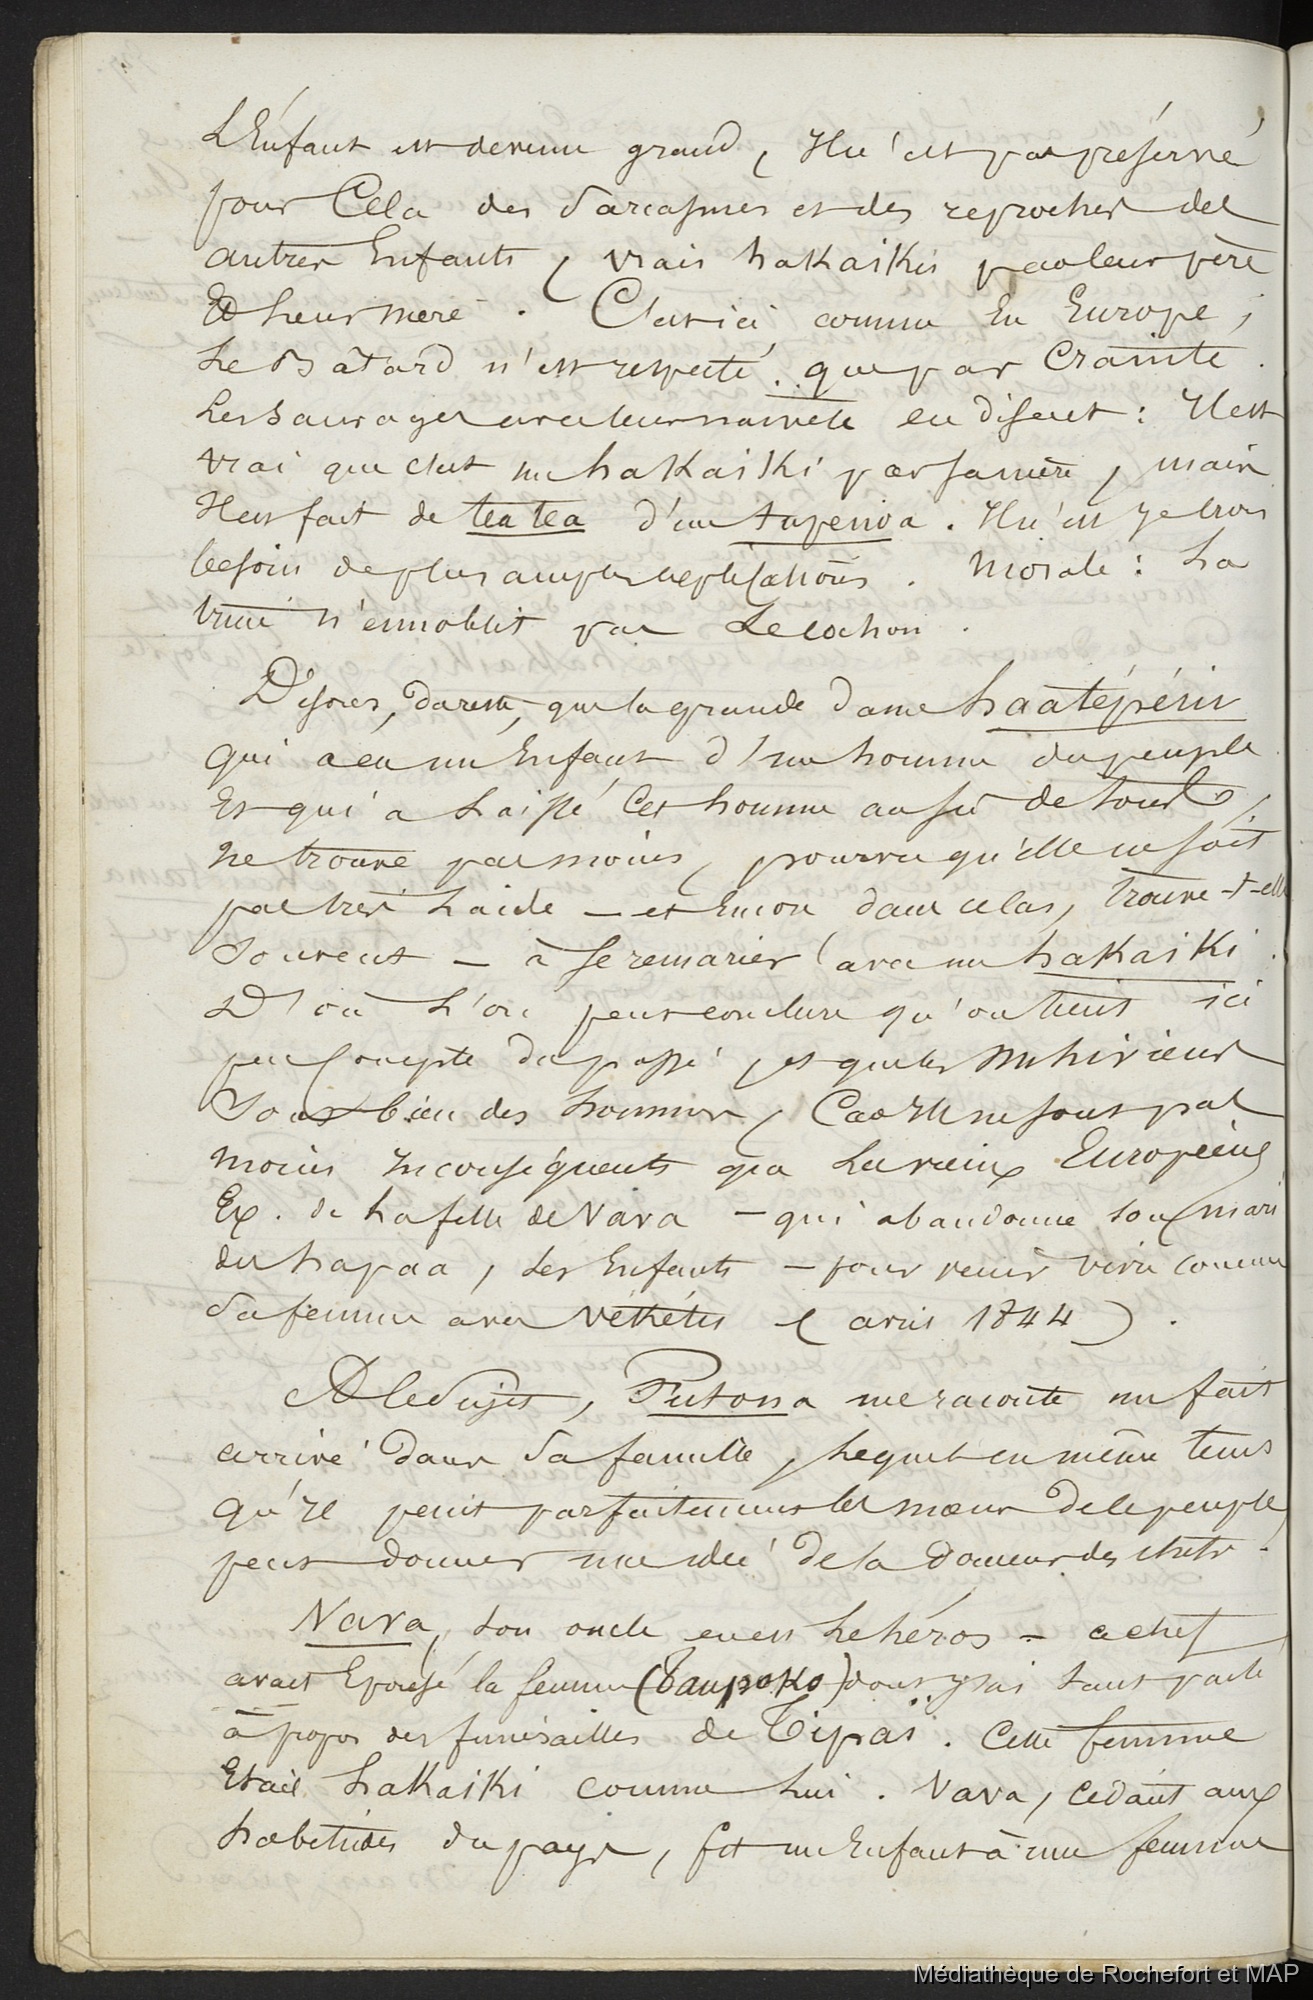 L'Enfant est devenu grand, Il n'est pas préservé
pour Cela des Sarcasmes et des reproches des
autres Enfants, vrais hakaikis par leur père
Et Leur mere. C'est ici comme En Europe,
Le Bâtard n'est respecté que par Crainte.
Les Sauvages avec leur naiveté en disent: Il est
vrai que c'est un hakaiki par sa mère, mais
Il est fait de teatea d'un tupenoa. Il n'est je crois
besoin de plus amples explications. Morale: La
truie n'ennoblit pas Le cochon.
Disons, du reste, que la grande Dame haatépéiu
qui a eu un Enfant d'un homme du peuple
Et qui a Laissé Cet homme au su de tous,
ne trouve pas moins, pourvu qu'elle ne soit
pas trés Laide — et Encore dans ce cas, trouve-t-elle
Souvent — à se remarier avec un hakaiki.
D'où L'on peut conclure qu'on tient ici
peu Compte du passé, et que les Nuhiviens
Sont bien des hommes, Car Ils ne sont pas
moins Inconséquents que Les vieux Européens
Ex. de La fille de Nava — qui abandonne son mari
du hapaa, Les Enfants — pour venir vivre comme
Sa femme avec Vékétu (avril 1844).
A ce Sujet, Putona me raconte un fait
arrivé dans Sa famille, Lequel en même tems
qu'Il peint parfaitement les mœurs de ce peuple,
peut donner une idée de la Douceur des chefs.
Nava, Son oncle en est Le héros — ce chef
avait Epousé la femme (Taupoko) dont j'ai tant parlé
à propos des funérailles de Tipaï. Cette femme
Etait hakaiki comme Lui. Nava, cédant aux
habitudes du pays, fit un Enfant à une femme
Médiathèque de Rochefort et MAP